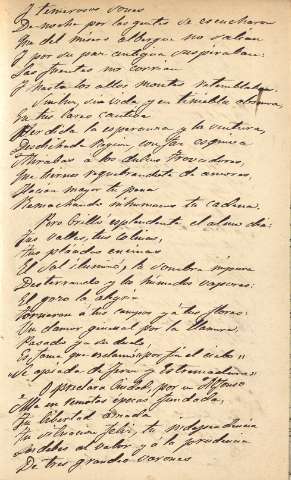 Y temerosos sones
De noche por las gentes se escucharon
Que del mísero albergue no salían
Y por su paz antigua suspiraban:
Las fuentes no corrían
Y hasta los altos montes retemblaban
Sin luz, sin vida y en terrible
En tus lares cautiva
Perdida la esperanza y la ventura,
Desdichada Region, con faz esquiva
Mirabas a los dulces Trovadores,
Que tiernos requebrandote de amores,
Hacían mayor tu pena
Remachando inhumanos tu cadena.
Pero brilló esplendente el almo dia:
Tus valles, tus colinas,
tus plácidas encinas
El Sol iluminó, la sombra impura
Desterrando y los húmedos vapores:
El gozo la alegria
Tornaron á tus campos y á tus flores:
Un clamor general por la llanura
Pasado ya su duelo,
Se, fama que esclamó: "por fin el cielo"
"Se apiada de
O preclara Ciudad, por un Alfonso
Allá en remotas épocas fundada,
Tu libertad
Tu situacion feliz, tu independencia
Las debes al valor y á la prudencia
De tres grandes varones